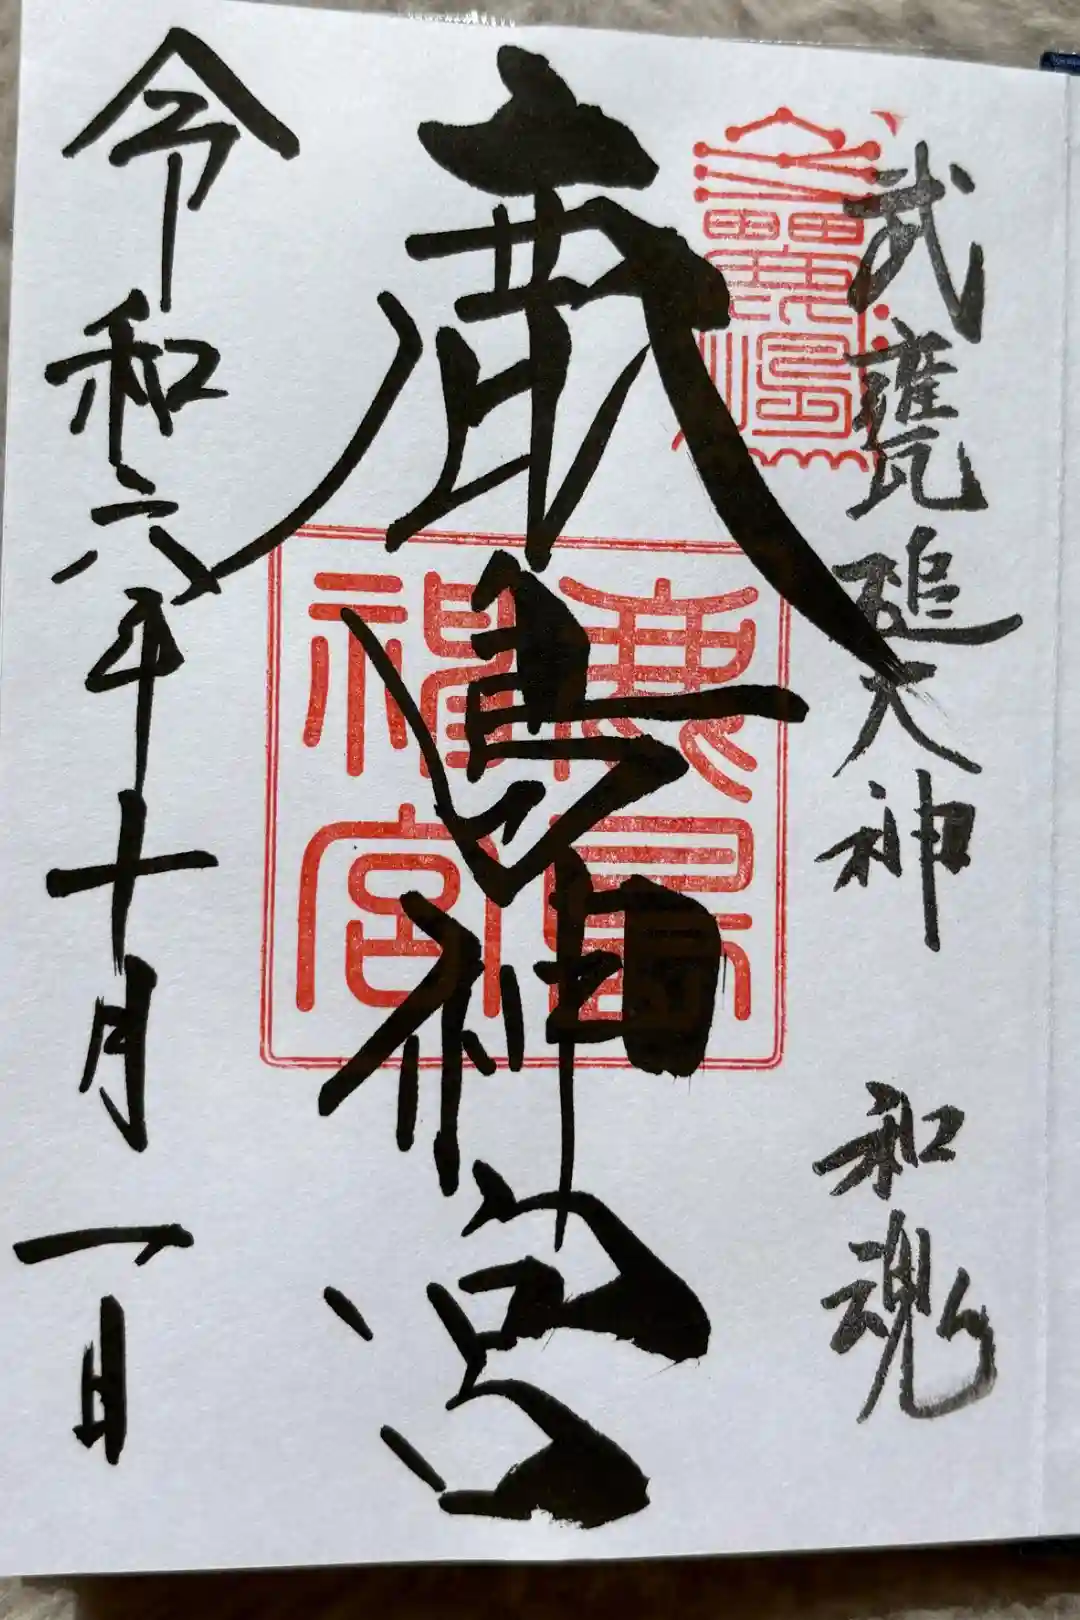 武甕槌大神 和魂
鹿島神宮
鹿島
神宮
令和六年十月一日